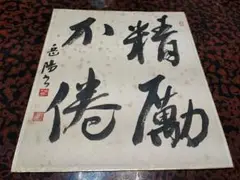 精勵
不倦
岳陽